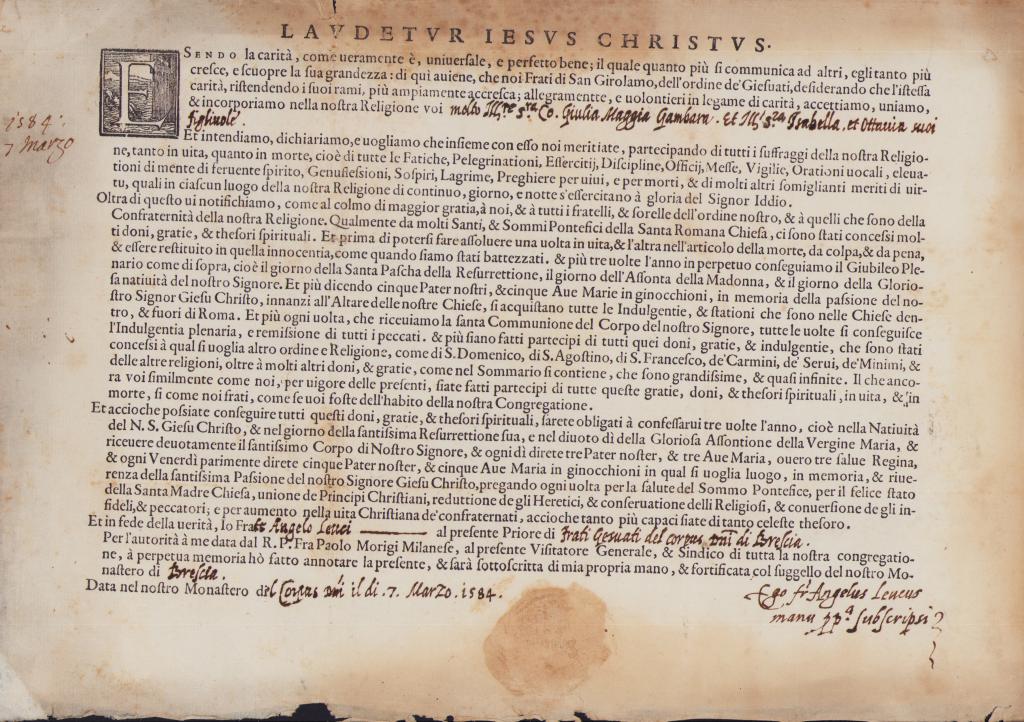 LAVDETVR IESVS CHRISTVS.
ESENDO la carità, come ueramente è, uniuersale, e perfetto bene; il quale quanto più si communica ad altri, egli tanto più
cresce, e scuopre la sua grandezza: di quì auiene, che noi Frati di San Girolamo, dell'ordine de' Giesuati, desiderando che l'istessa
carità, ristendendo i suoi rami, più ampiamente accresca; allegramente, e uolontieri in legame di carità, accettiamo, uniamo,
& incorporiamo nella nostra Religione voi molto Ill.re s.ra Co. Giulia Maggia Gambara. Et Ill. s.ra Isabella, et Ottauia suoi
figliuole.
1584.
7 marzo
Et intendiamo, dichiariamo, e uogliamo che insieme con esso noi meritiate, partecipando di tutti i suffragi della nostra Religio-
ne, tanto in uita, quanto in morte, cioè di tutte le Fatiche, Pelegrinationi, Essercitij, Discipline, Officij, Messe, Vigilie, Orationi uocali, eleua-
tioni di mente di feruente spirito, Genuflessioni, Sospiri, Lagrime, Preghiere per uiui, e per morti, & di molti altri somiglianti meriti di uir-
tu, quali in ciascun luogo della nostra Religione di continuo, giorno, e notte s'essercitano à gloria del Signor Iddio.
Oltra di questo ui notifichiamo, come al colmo di maggior gratia, à noi, & à tutti i fratelli, & sorelle dell'ordine nostro, & à quelli che sono della
Confraternità della nostra Religione. Qualmente da molti Santi, & Sommi Pontefici della Santa Romana Chiesa, ci sono stati concessi mol-
ti doni, gratie, & thesori spirituali. Et prima di potersi fare assoluere una uolta in uita, & l'altra nell'articolo della morte, da colpa, & da pena,
& essere restituito in quella innocentia, come quando siamo stati battezzati. & più tre uolte l'anno in perpetuo conseguiamo il Giubileo Ple-
nario come di sopra, cioè il giorno della Santa Pascha della Resurrettione, il giorno dell'Assonta della Madonna, & il giorno della Glorio-
sa natiuità del nostro Signore. Et più dicendo cinque Pater nostri, & cinque Aue Marie in ginocchioni, in memoria della passione del no-
stro Signor Giesu Christo, innanzi all'Altare delle nostre Chiese, si acquistano tutte le Indulgentie, & stationi che sono nelle Chiese den-
tro, & fuori di Roma. Et più ogni uolta, che riceuiamo la santa Communione del Corpo del nostro Signore, tutte le uolte si conseguisce
l'Indulgentia plenaria, e remissione di tutti i peccati. & più siano fatti partecipi di tutti quei doni, gratie, & indulgentie, che sono stati
concessi à qual si uoglia altro ordine e Religione, come di S. Domenico, di S. Agostino, di S. Francesco, de' Carmini, de' Serui, de' Minimi, &
delle altre religioni, oltre à molti altri doni, & gratie, come nel Sommario si contiene, che sono grandissime, & quasi infinite. Il che anco-
ra voi similmente come noi, per uigore delle presenti, siate fatti partecipi di tutte queste gratie, doni, & thesori spirituali, in uita, & in
morte, si come noi frati, come se uoi foste dell'habito della nostra Congregatione.
Et accioche possiate conseguire tutti questi doni, gratie, & thesori spirituali, sarete obligati à confessarui tre uolte l'anno, cioè nella Natiuità
del N. S. Giesu Christo, & nel giorno della santissima Resurrettione sua, e nel diuoto dì della Gloriosa Assontione della Vergine Maria, &
riceuere deuotamente il santissimo Corpo di Nostro Signore, & ogni dì direte tre Pater noster, & tre Aue Maria, ouero tre salue Regina,
& ogni Venerdì parimente direte cinque Pater noster, & cinque Aue Maria in ginocchioni in qual si uoglia luogo, in memoria, & riue-
renza della santissima Passione del nostro Signore Giesu Christo, pregando ogni uolta per la salute del Sommo Pontefice, per il felice stato
della Santa Madre Chiesa, unione de Principi Christiani, reduttione de gli Heretici, & conseruatione delli Religiosi, & conuersione de gli in-
fideli, & peccatori; e per aumento nella uita Christiana de' confraternati, accioche tanto più capaci siate di tanto celeste thesoro.
Et in fede della uerità, Io Frate Angelo Leuci al presente Priore di frati Gesuati del corpus Dni di Brescia.
Per l'autorità à me data dal R. P. Fra Paolo Morigi Milanese, al presente Visitatore Generale, & Sindico di tutta la nostra congregatio-
ne, à perpetua memoria hò fatto annotare la presente, & sarà sottoscritta di mia propria mano, & fortificata col suggello del nostro Mo-
nastero di Brescia.
Data nel nostro Monastero del Corpus Dni il di .7. Marzo. 1584.
Ego fr Angelus Leucus
manu ppa subscripsi